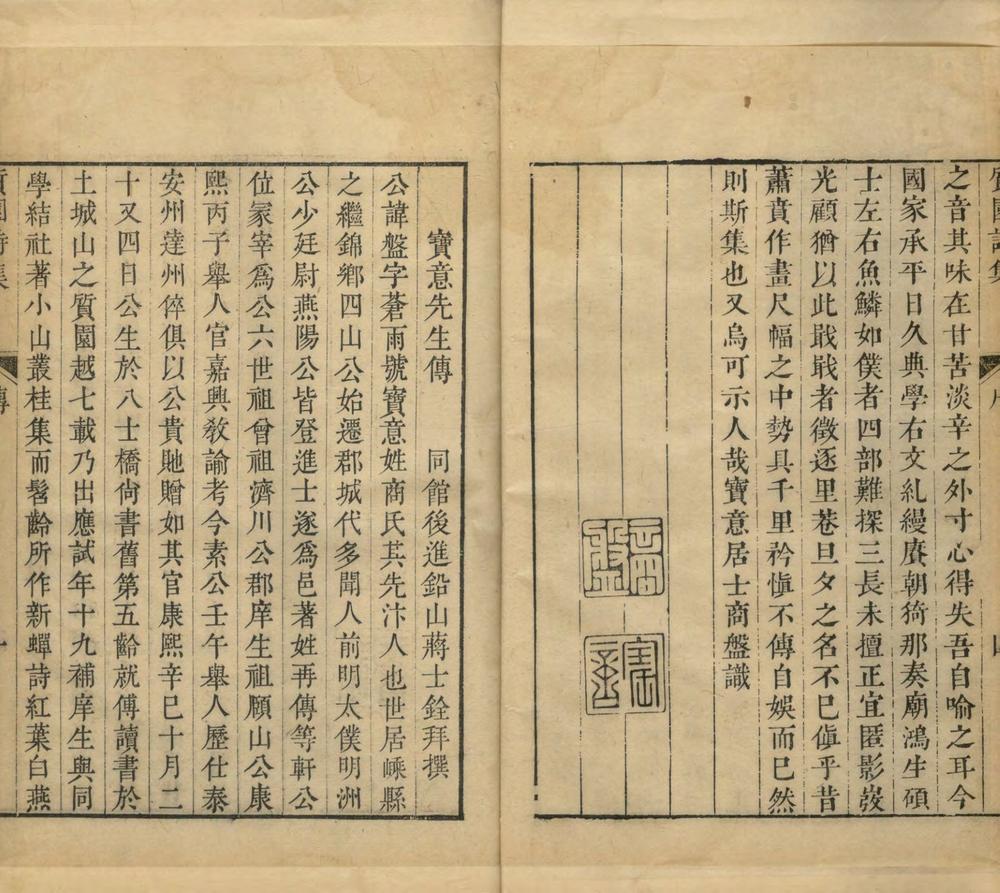 質園詩集
序
四
之音其味在甘苦淡辛之外寸心得失吾自喻之耳今
國家承平日久典學右文糺縵賡朝猗那奏廟鴻生碩
士左右魚鱗如僕者四部難探三長未擅正宜匿影發
光顧猶以此戢戢者徵逐里巷旦夕之名不已傎乎昔
蕭賁作畫尺幅之中勢具千里矜慎不傳自娛而已然
則斯集也又烏可示人哉寶意居士商盤識
商盤
寶意
寶意先生傳　同館後進鉛山蔣士銓拜撰
公諱盤字蒼雨號寶意姓商氏其先汴人也世居嵊縣
之繼錦鄉四山公始遷郡城代多聞人前明太僕明洲
公少廷尉燕陽公皆登進士遂為邑著姓再傳等軒公
位冢宰為公六世祖曾祖濟川公郡庠生祖願山公康
熙丙子舉人官嘉興教諭考今素公壬午舉人歷仕泰
安州達州倅俱以公貴貤贈如其官康熙辛巳十月二
十又四日公生於八士橋尙書舊第五齡就傅讀書於
土城山之質園越七載乃出應試年十九補庠生與同
學結社著小山叢桂集而髫齡所作新蟬詩紅葉白燕
質園詩集
傳
一